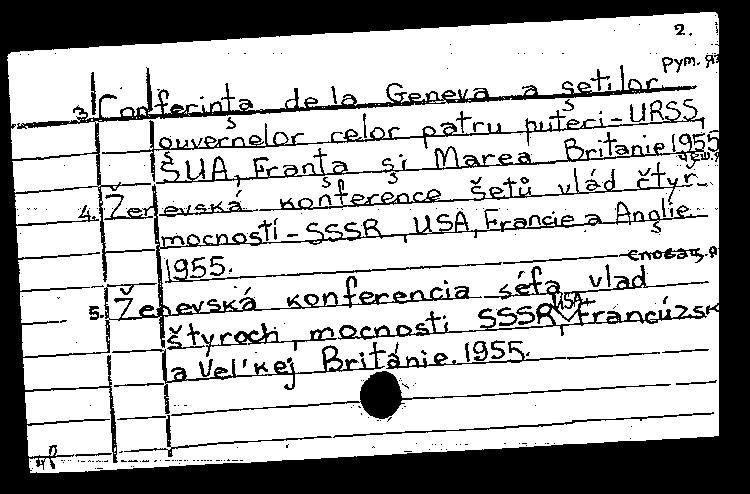 2.
Рум. яз
3. Conferinţa de la Geneva a şefilor
guvernelor celor patru puteri - URSS,
SUA, Franţa şi Marea Britanie 1955
чеш. я
4. Ženevská konference šéfů vlád čtyř
mocností - SSSR, USA, Francie a Anglie
1955.
словац. я
5. Ženevská konferencia šéfa vlad
štyroch, mocnosti SSSR, USA, Francúzsk
a Vel'kej Británie. 1955.